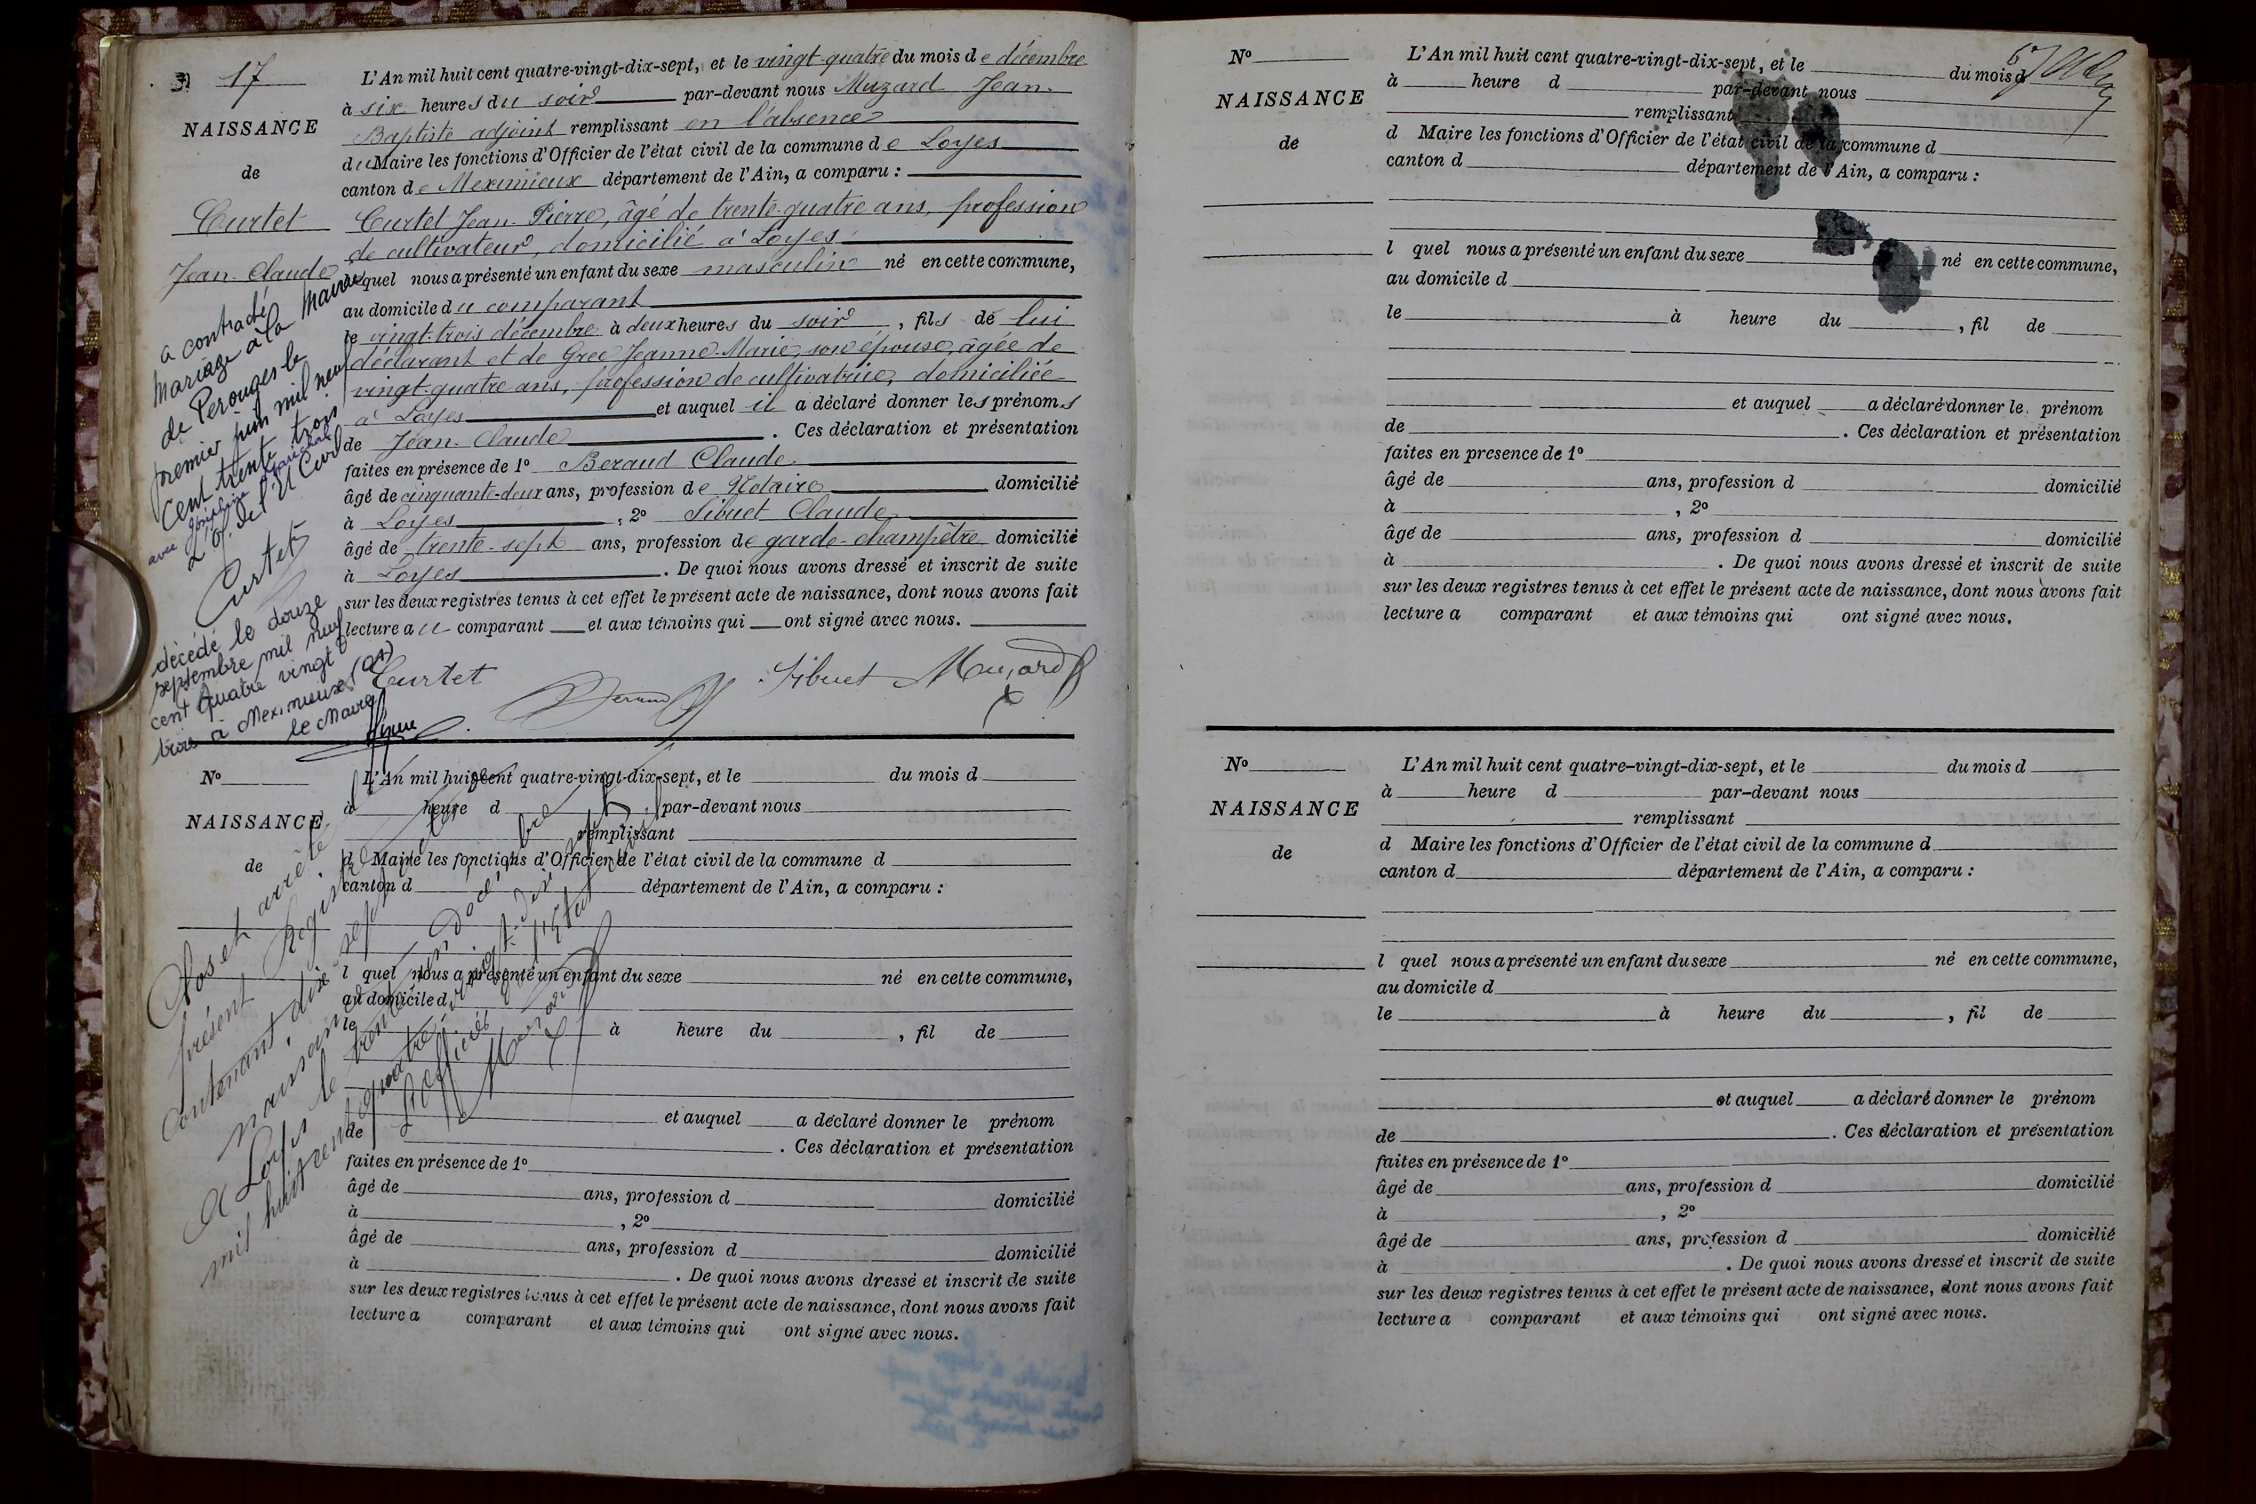 N° 17
NAISSANCE
de
Curtet
Jean-Claude
L'An mil huit cent quatre-vingt-dix-sept, et le vingt-quatre du mois de décembre
à six heures du soir par-devant nous Muzard Jean-
Baptiste adjoint remplissant en l'absence
du Maire les fonctions d'Officier de l'état civil de la commune de Loyes
canton de Meximieux département de l'Ain, a comparu :
Curtet Jean-Pierre, âgé de trente-quatre ans, profession
de cultivateur, domicilié à Loyes
lequel nous a présenté un enfant du sexe masculin né en cette commune,
au domicile du comparant
le vingt-trois décembre à deux heures du soir, fils de lui
déclarant et de Grec Jeanne-Marie, son épouse, âgée de
vingt-quatre ans, profession de cultivatrice, domiciliée
à Loyes et auquel il a déclaré donner les prénoms
de Jean-Claude. Ces déclaration et présentation
faites en présence de 1° Beraud Claude
âgé de cinquante-deux ans, profession de Notaire domicilié
à Loyes, 2° Sibuet Claude
âgé de trente-sept ans, profession de garde-champêtre domicilié
à Loyes. De quoi nous avons dressé et inscrit de suite
sur les deux registres tenus à cet effet le présent acte de naissance, dont nous avons fait
lecture au comparant et aux témoins qui ont signé avec nous.
Curtet Beraud Sibuet Muzard
a contracté
mariage à la Mairie
de Perouges le
premier juin mil neuf
cent trente trois
avec Joséphine
L'Of. de l'Et Civil
Curtet
décédé le douze
septembre mil neuf
cent quatre vingt
trois à Meximieux (01)
le Maire
N°
NAISSANCE
de
L'An mil huit cent quatre-vingt-dix-sept, et le du mois d
à heure d par-devant nous
remplissant
d Maire les fonctions d'Officier de l'état civil de la commune d
canton d département de l'Ain, a comparu :
l quel nous a présenté un enfant du sexe né en cette commune,
au domicile d
le à heure du , fil de
et auquel a déclaré donner le prénom
de . Ces déclaration et présentation
faites en présence de 1°
âgé de ans, profession d domicilié
à , 2°
âgé de ans, profession d domicilié
à . De quoi nous avons dressé et inscrit de suite
sur les deux registres tenus à cet effet le présent acte de naissance, dont nous avons fait
lecture a comparant et aux témoins qui ont signé avec nous.
Clos et arrêté le
présent Registre
contenant dix-sept actes de
naissance
A Loyes le trente un Décembre
mil huit cent quatre vingt-dix sept
L'Officier de l'Etat Civil
Muzard
N°
NAISSANCE
de
L'An mil huit cent quatre-vingt-dix-sept, et le du mois d
à heure d par-devant nous
remplissant
d Maire les fonctions d'Officier de l'état civil de la commune d
canton d département de l'Ain, a comparu :
l quel nous a présenté un enfant du sexe né en cette commune,
au domicile d
le à heure du , fil de
et auquel a déclaré donner le prénom
de . Ces déclaration et présentation
faites en présence de 1°
âgé de ans, profession d domicilié
à , 2°
âgé de ans, profession d domicilié
à . De quoi nous avons dressé et inscrit de suite
sur les deux registres tenus à cet effet le présent acte de naissance, dont nous avons fait
lecture a comparant et aux témoins qui ont signé avec nous.
N°
NAISSANCE
de
L'An mil huit cent quatre-vingt-dix-sept, et le du mois d
à heure d par-devant nous
remplissant
d Maire les fonctions d'Officier de l'état civil de la commune d
canton d département de l'Ain, a comparu :
l quel nous a présenté un enfant du sexe né en cette commune,
au domicile d
le à heure du , fil de
et auquel a déclaré donner le prénom
de . Ces déclaration et présentation
faites en présence de 1°
âgé de ans, profession d domicilié
à , 2°
âgé de ans, profession d domicilié
à . De quoi nous avons dressé et inscrit de suite
sur les deux registres tenus à cet effet le présent acte de naissance, dont nous avons fait
lecture a comparant et aux témoins qui ont signé avec nous.